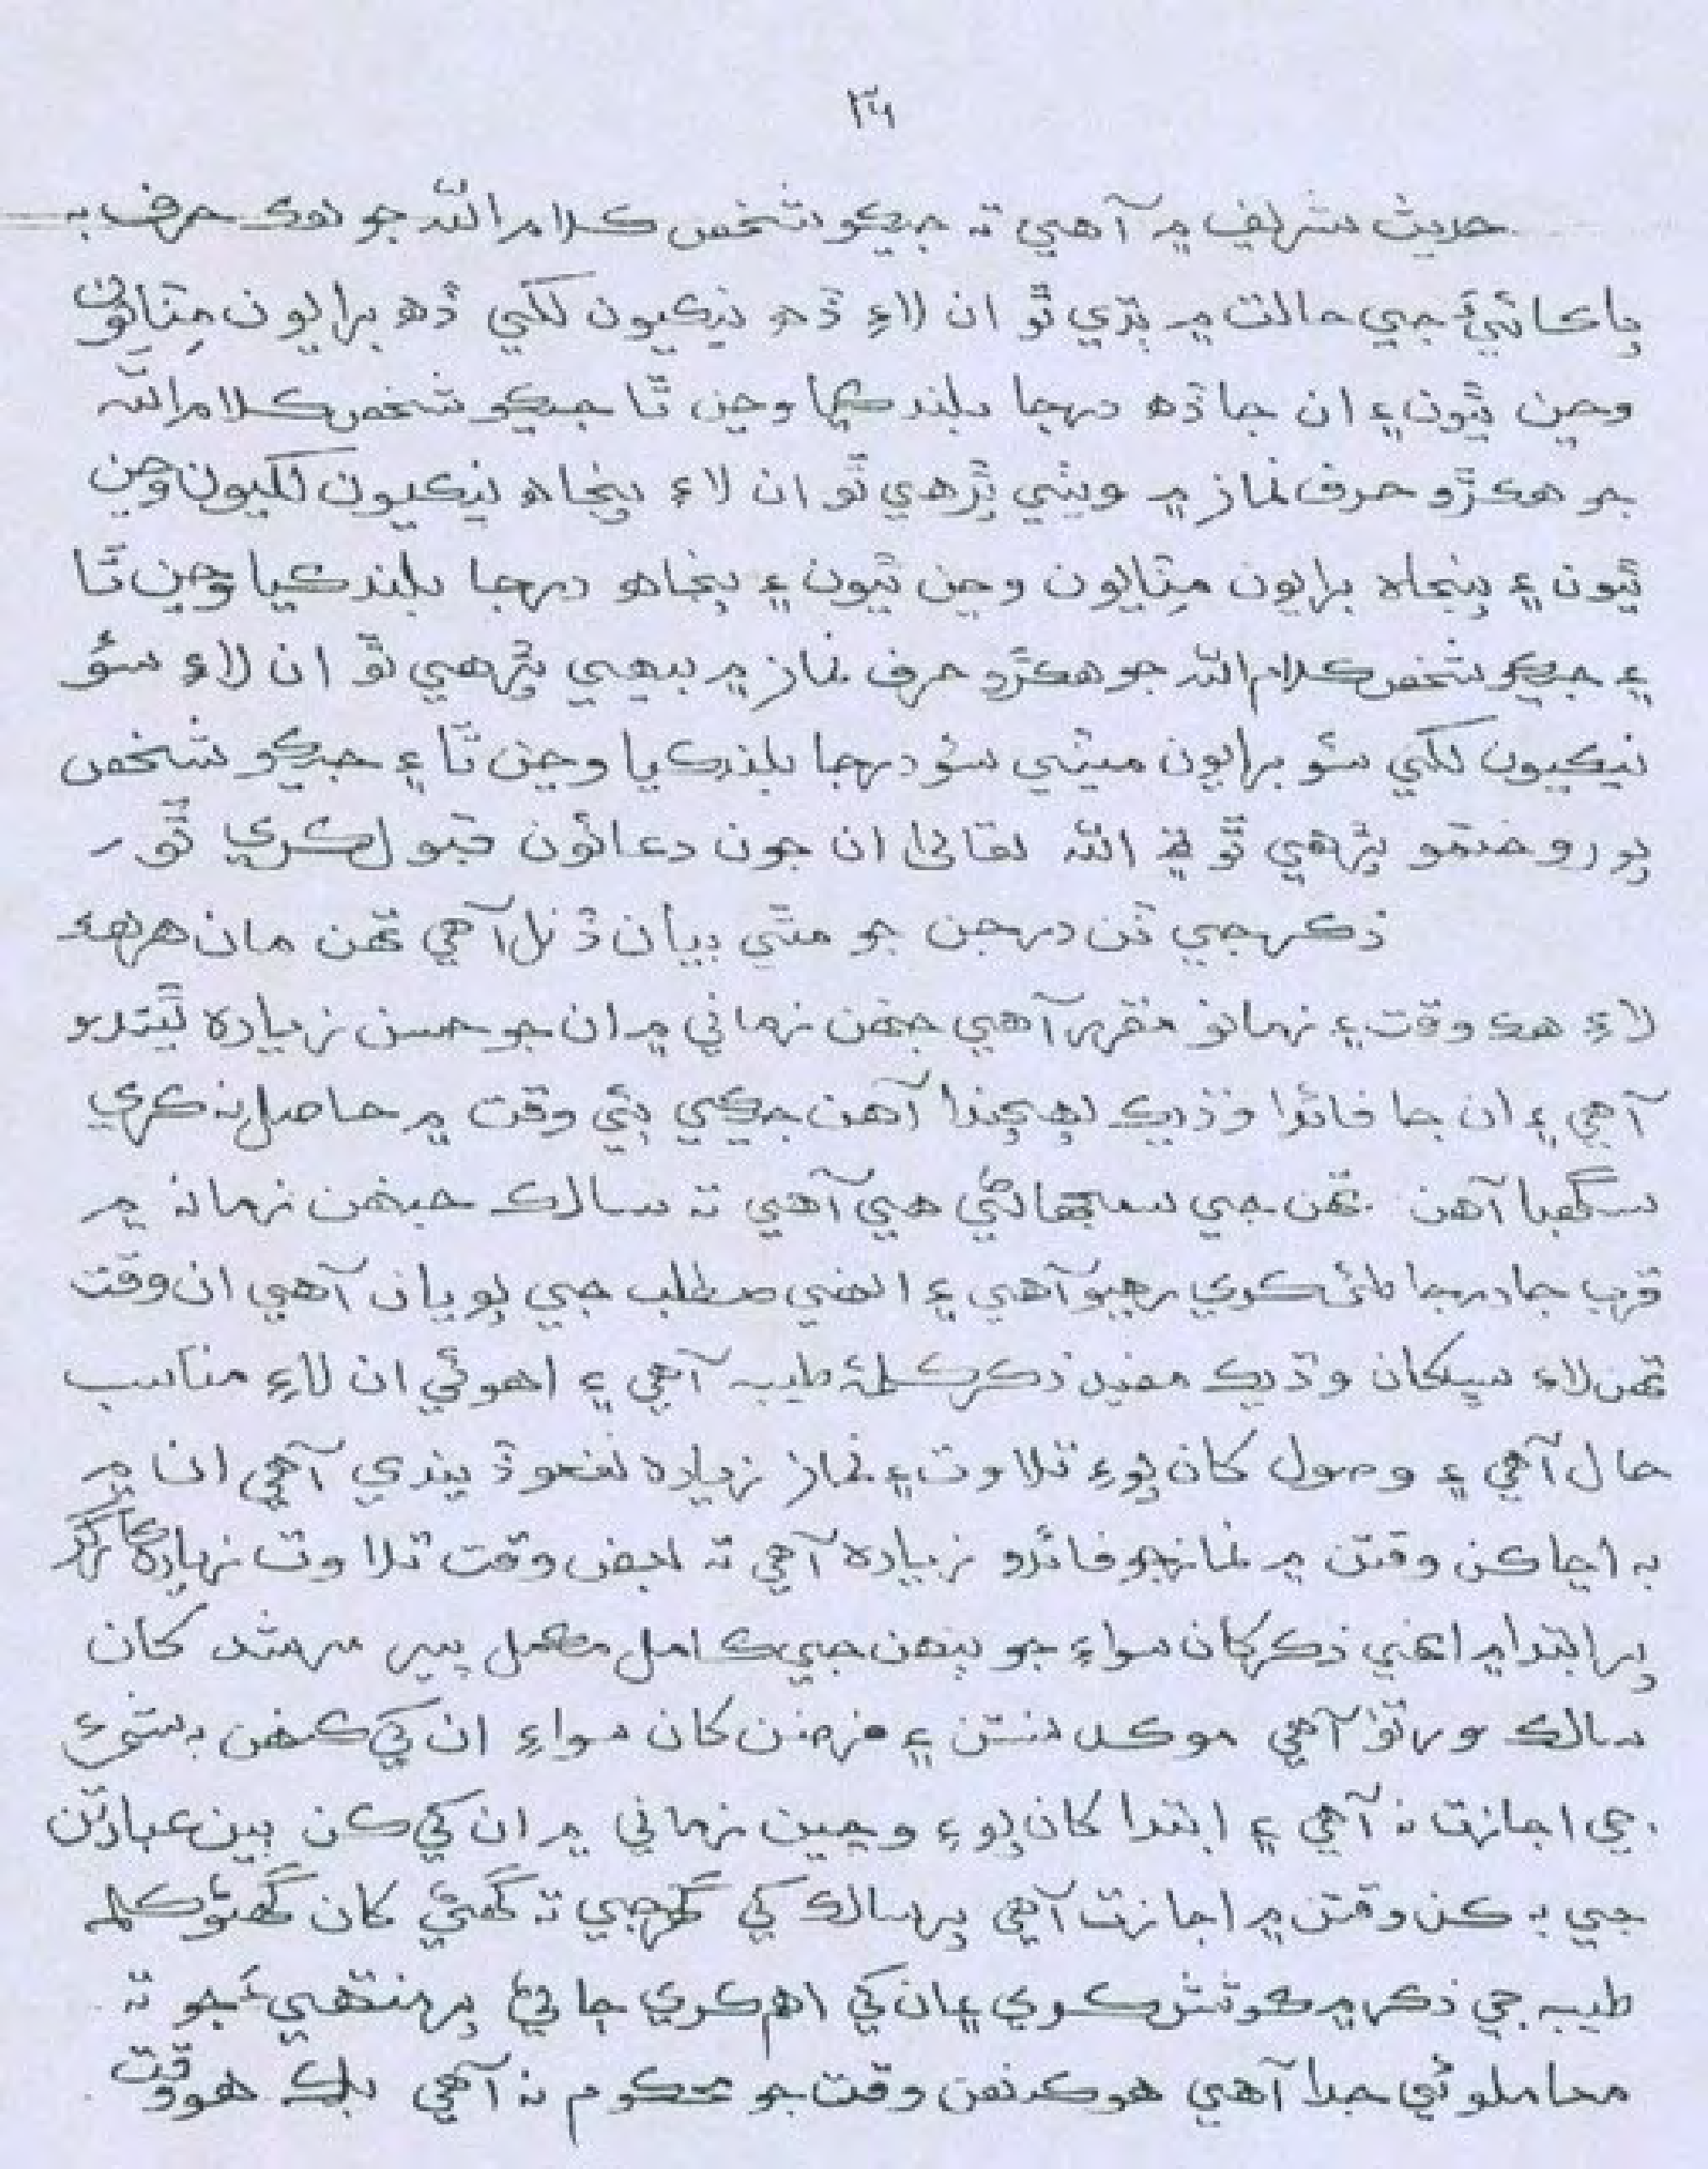 ٢٦
حديث شريف ۾ آهي ته جيڪو شخص ڪلام الله جو هڪ حرف به
پاڪائيءَ جي حالت ۾ پڙي ٿو ان لاءِ ڏهه نيڪيون لکي ڏهه برايون مِٽايون
وڃن ٿيون ۽ ان جا ڏهه درجا بلند ڪيا وڃن ٿا جيڪو شخص ڪلام الله
جو هڪڙو حرف نماز ۾ ويٺي پڙهي ٿو ان لاءِ پنجاه نيڪيون لکيون وڃن
ٿيون ۽ پنجاه برايون مِٽايون وڃن ٿيون ۽ پنجاهه درجا بلند ڪيا وڃن ٿا
۽ جيڪو شخص ڪلام الله جو هڪڙو حرف نماز ۾ بيهي پڙهي ٿو ان لاءِ سئو
نيڪيون لکي سئو برايون ميٽي سئو درجا بلند ڪيا وڃن ٿا ۽ جيڪو شخص
پورو ختمو پڙهي ٿو ته الله تعاليٰ ان جون دعائون قبول ڪري ٿو ۔
ذڪر جي ٽن درجن جو مٿي بيان ڏنل آهي تهن مان هر هڪ
لاءِ هڪ وقت ۽ زمانو مقرر آهي جنهن زماني ۾ ان جو حسن زياده ٿيندو
آهي ۽ ان جا فائدا وڌيڪ پهچندا آهن جيڪي ٻئي وقت ۾ حاصل نه ڪري
سگهبا آهن. تهن جي سمجهاڻي هي آهي ته سالڪ جنهن زمانه ۾
قرب جا درجا طئي ڪري رهيو آهي ۽ انهي مطلب جي پويان آهي ان وقت
تهن لاءِ سڀڪان وڌيڪ مفيد ذڪر ڪلمۂ طيبه آهي ۽ اهوئي ان لاءِ مناسب
حال آهي ۽ وصول کان پوءِ تلاوت ۽ نماز زياده نفعو ڏيندي آهي ان ۾
به اڃا ڪن وقتن ۾ نماز جو فائدو زياده آهي ته بعض وقت تلاوت زياده ڪارگر
پر ابتدا ۾ انهي ذڪر کان سواءِ جو پنهن جي ڪامل مڪمل پير مرشد کان
سالڪ ورتو آهي موڪد سنتن ۽ فرضن کان سواءِ ان کي ڪنهن به شيءِ
جي اجازت نه آهي ۽ ابتدا کان پوءِ وچين زماني ۾ ان کي ڪن ٻين عبادتن
جي به ڪن وقتن ۾ اجازت آهي پر سالڪ کي گهرجي ته گهڻي کان گهڻو ڪلمه
طيبه جي ذڪر ۾ ڪوشش ڪري ۽ ان کي اهم ڪري ڄاڻي پر منتهيءَ جو ته
معاملوئي جدا آهي هو ڪنهن وقت جو محڪوم نه آهي بلڪ هو وقت